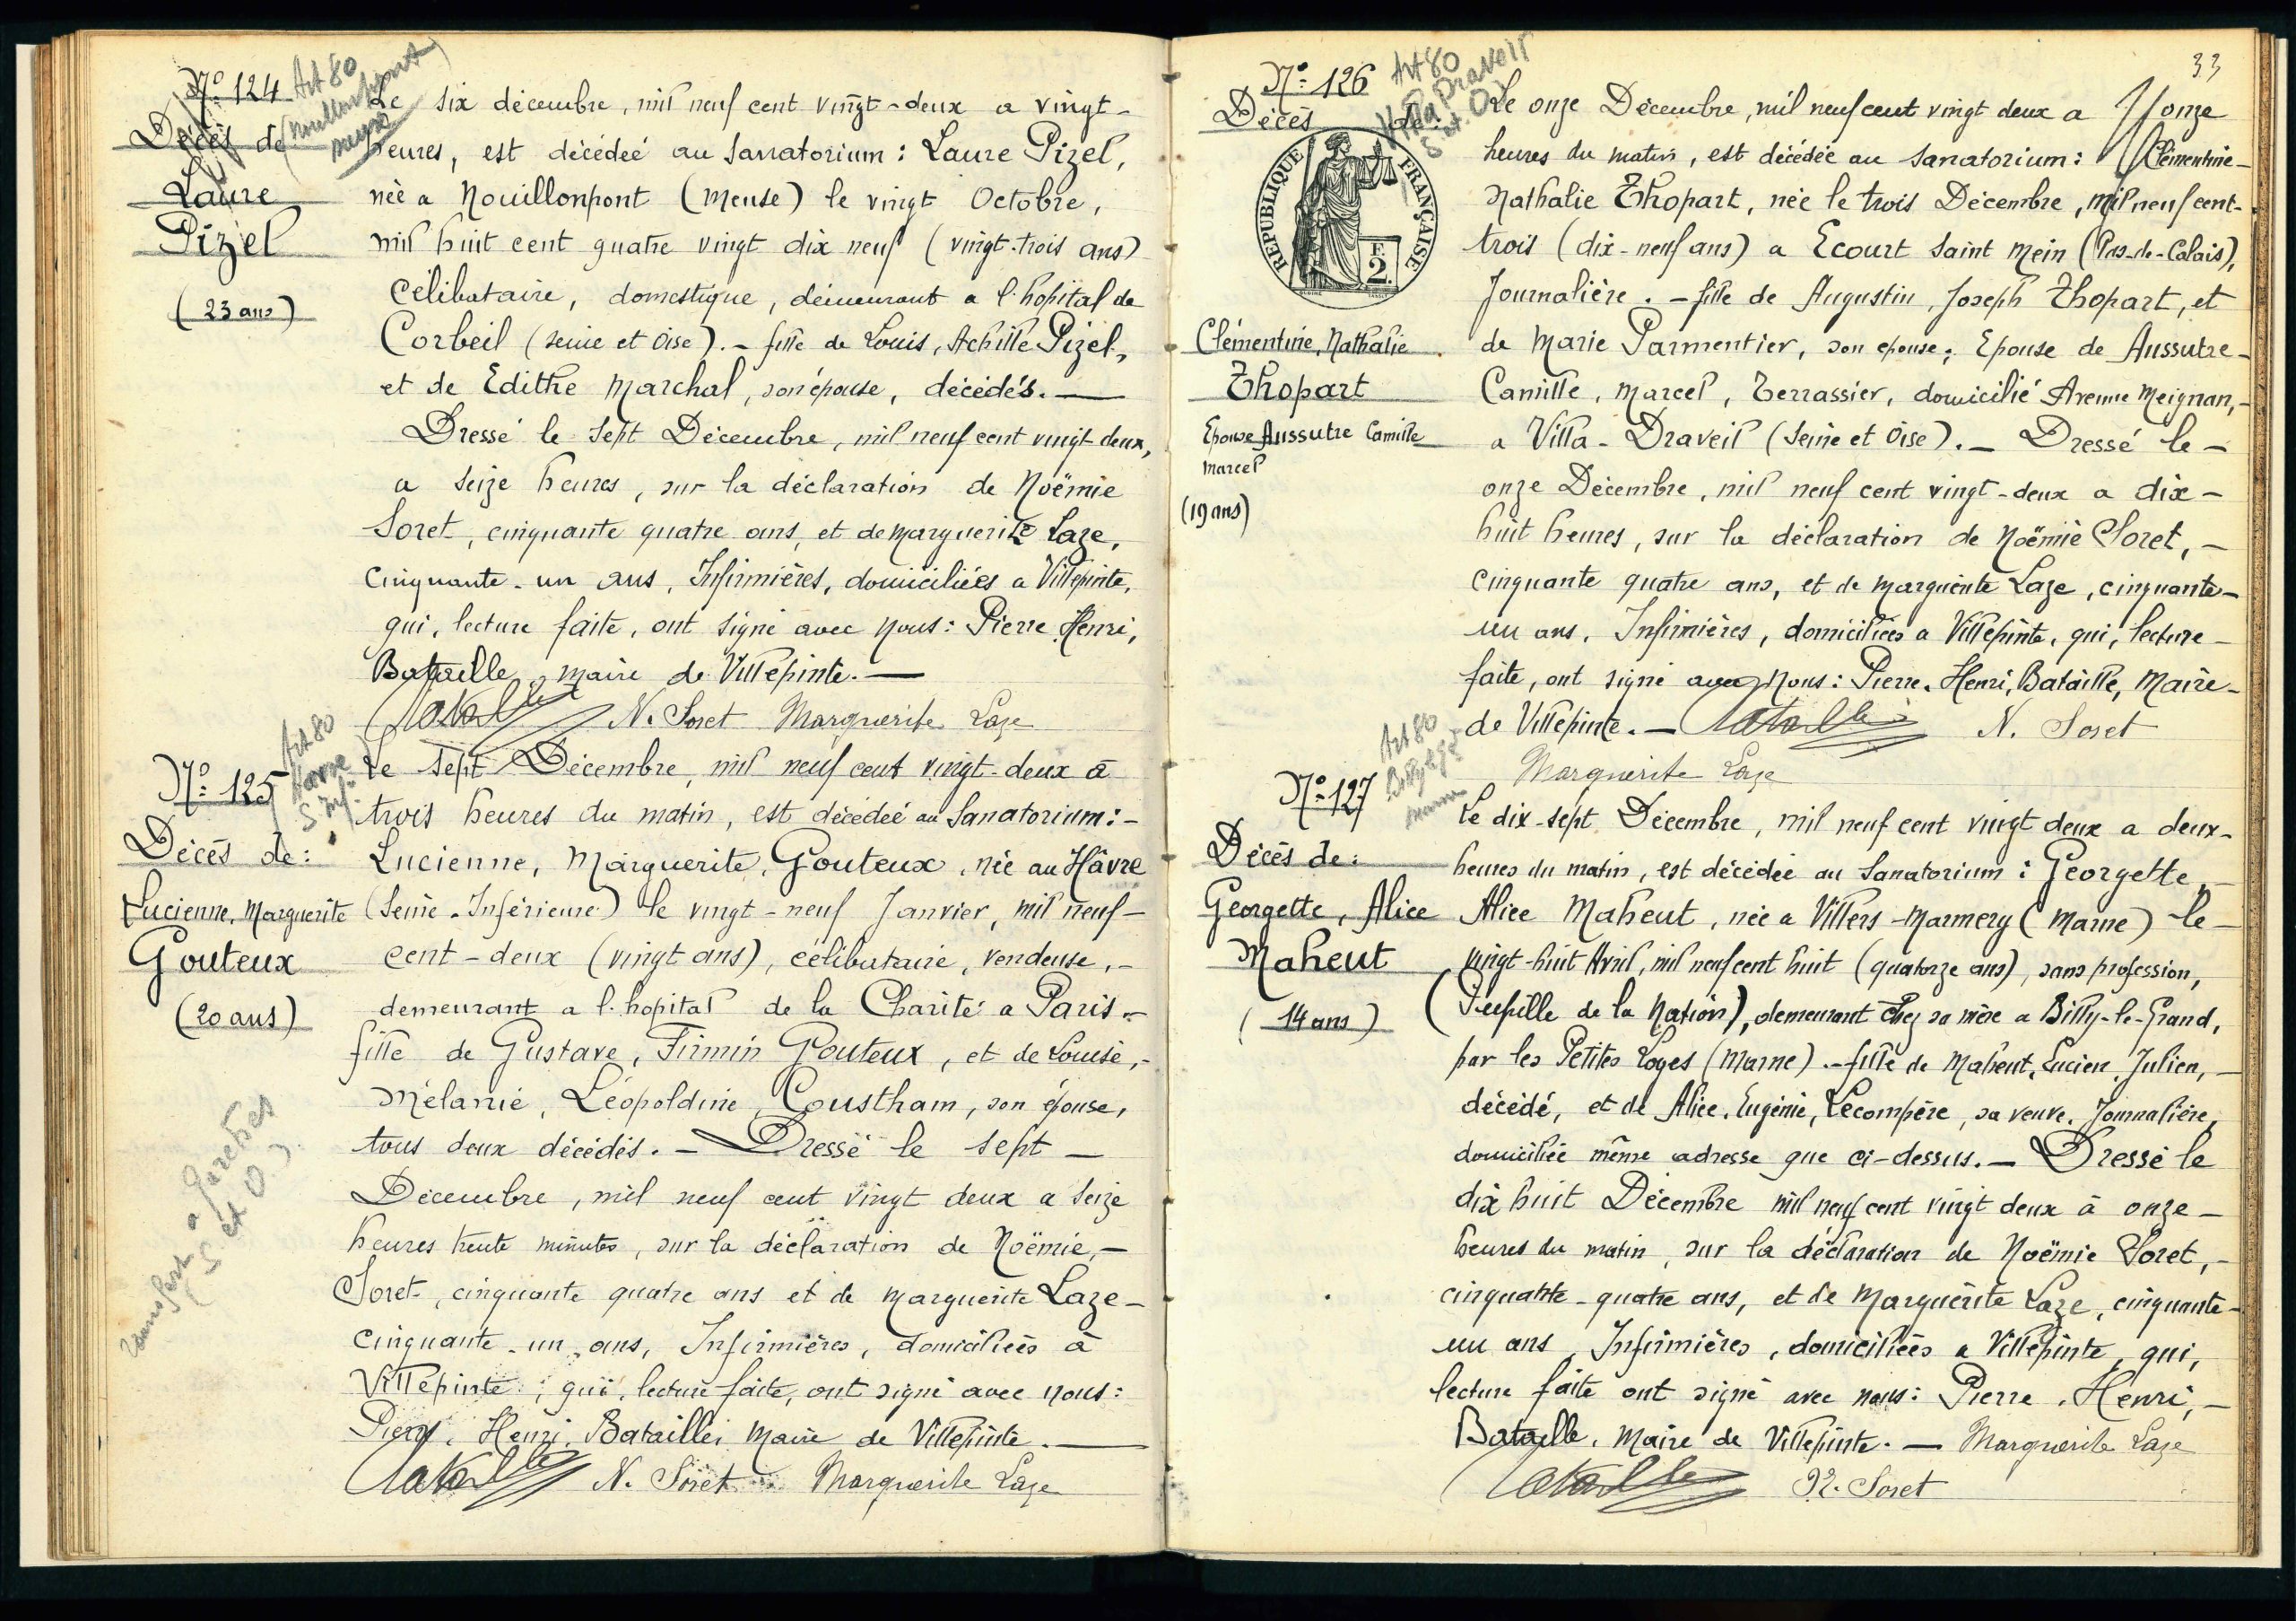 Nº 124
Art 80
(Nouillonpont
Meuse)
Décès de
Laure
Pizel
(23 ans)
Le six décembre, mil neuf cent vingt-deux a vingt-
heures, est décédeé au Sanatorium : Laure Pizel,
néé a Nouillonpont (Meuse) le vingt Octobre,
mil huit cent quatre vingt dix neuf (vingt-trois ans)
Célibataire, domestique, demeurant a l'hopital de
Corbeil (Seine et Oise). - fille de Louis, Achille Pizel,
et de Edithe Marchal, son épouse, décédés. —
Dressé le Sept Décembre, mil neuf cent vingt deux,
a Seize heures, sur la déclaration de Noëmie
Soret, cinquante quatre ans, et de Marguerite Laze,
Cinquante-un ans, Infirmières, domiciliées a Villepinte,
qui, lecture faite, ont signé avec Nous : Pierre, Henri,
Bataille, maire de Villepinte. —
Bataille N. Soret Marguerite Laze
Nº 125
Art 80
Havre
S Inf.
Décès de :
Lucienne, Marguerite
Gouteux
(20 ans)
transfert a Garches
(S et O)
Le Sept Décembre, mil neuf cent vingt-deux à
trois heures du matin, est décédeé au Sanatorium : -
Lucienne, Marguerite, Gouteux, née au Hâvre
(Seine-Inférieure) le vingt-neuf Janvier, mil neuf-
cent-deux (vingt ans), célibataire, vendeuse, -
demeurant a l'hopital de la Charité a Paris. -
fille de Gustave, Firmin Gouteux, et de Louise, -
Mélanie, Léopoldine, Coustham, son épouse,
tous deux décédés. - Dressé le sept -
Décembre, mil neuf cent vingt deux a Seize
heures trente minutes, sur la déclaration de Noëmie, -
Soret, cinquante quatre ans et de Marguerite Laze -
Cinquante-un ans, Infirmières, domiciliées à
Villepinte, qui, lecture faite, ont signé avec nous :
Pierre, Henri, Bataille, Maire de Villepinte. —
Bataille N. Soret Marguerite Laze
33
Nº 126
Art 80
Villa Draveil
S et O
Décès de :
RÉPUBLIQUE FRANÇAISE
F.
2.
Clémentine, Nathalie
Thopart
Epouse Aussutre Camille
Marcel
(19 ans)
Le onze Décembre, mil neuf cent vingt deux a onze
heures du matin, est décédée au Sanatorium : Clémentine -
Nathalie Thopart, née le trois Décembre, mil neuf cent-
trois (dix-neuf ans) a Ecourt Saint Mein (Pas-de-Calais),
Journalière. - fille de Augustin, Joseph Thopart, et
de Marie Parmentier, son epouse; Epouse de Aussutre -
Camille, Marcel, Terrassier, domicilié Avenue Meignan, -
a Villa-Draveil (Seine et Oise). - Dressé le -
onze Décembre, mil neuf cent vingt-deux a dix -
huit heures, sur la déclaration de Noëmie Soret, -
cinquante quatre ans, et de Marguerite Laze, cinquante -
un ans, Infirmières, domiciliées a Villepinte, qui, lecture -
faite, ont signé avec Nous : Pierre, Henri, Bataille, Maire -
de Villepinte. - Bataille N. Soret
Marguerite Laze
Nº 127
Art 80
Marne
Décès de :
Georgette, Alice
Maheut
(14 ans)
Le dix-sept Décembre, mil neuf cent vingt deux a deux -
heures du matin, est décédée au Sanatorium : Georgette, -
Alice Maheut, née a Villers-Marmery (Marne) le -
vingt-huit Avril, mil neuf cent huit (quatorze ans), sans profession,
(Pupille de la Nation), demeurant chez sa mère a Billy-le-Grand,
par les Petites Loges (Marne). - fille de Maheut, Lucien, Julien, -
décédé, et de Alice, Eugénie, Lecompère, sa veuve, Journalière,
domiciliée même adresse que ci-dessus. - Dressé le
dix huit Décembre mil neuf cent vingt deux à onze -
heures du matin, sur la déclaration de Noëmie Soret, -
cinquante-quatre ans, et de Marguerite Laze, cinquante -
un ans, Infirmières, domiciliées a Villepinte, qui,
lecture faite ont signé avec nous : Pierre, Henri, -
Bataille, Maire de Villepinte. - Marguerite Laze
Bataille N. Soret